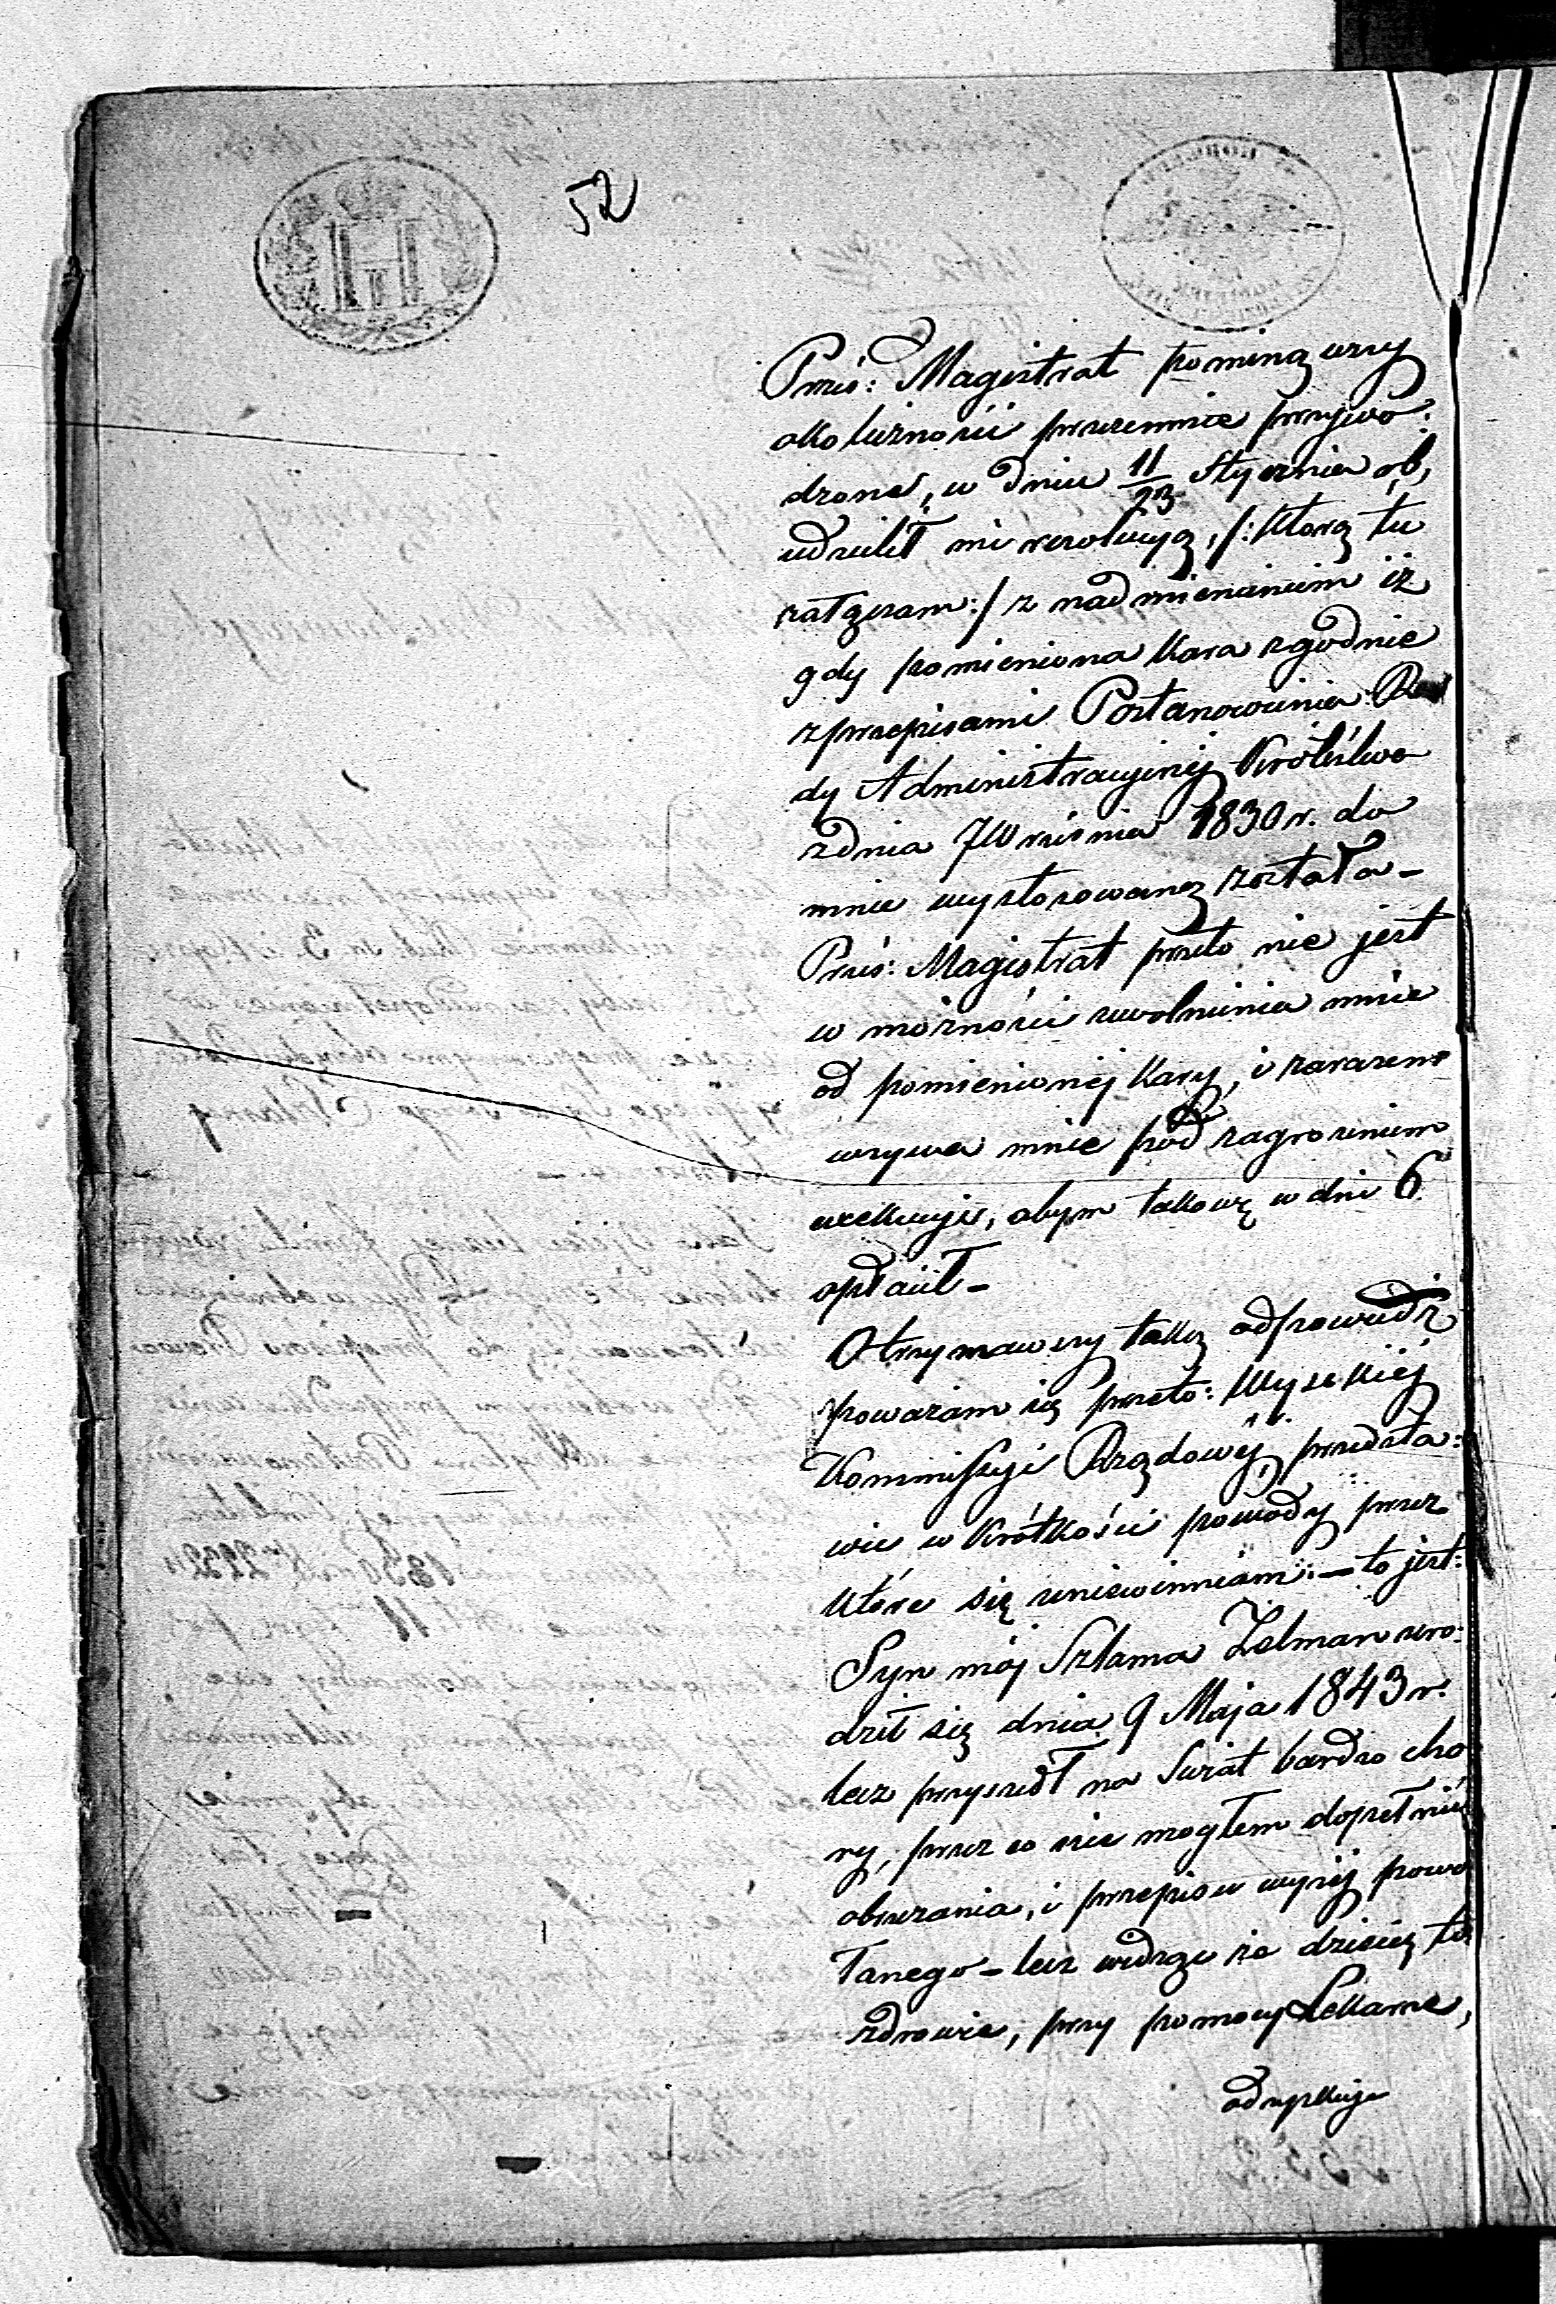 52
Prześ: Magistrat pominąwszy
okoliczności przezemnie przywo:
dzone, w dniu 11/23 Stycznia r.b,
udzielił mi rezolucyą, /: którą tu
załączam :/ z nadmienieniem iż
gdy pomieniona kara zgodnie
z przepisami Postanowienia Ra
dy Administracyjnej Królestwa
z dnia 7 Września 1830 r. do
mnie wystosowaną została –
Prześ: Magistrat przeto nie jest
w możności uwolnienia mnie
od pomienionej kary, i zarazem
wzywa mnie pod zagrożeniem
exekucyi, abym takową w dni 6.
opłacił –
Otrzymawszy taką odpowiedź
poważam się przeto: Wysokiéj
Kommissyi Rządowéj przedsta:
wić w krótkości powody przez
które się uniewinniam: — to jest:
Syn mój Szlama Zelman uro:
dził się dnia 9 Maja 1843 r.
lecz przyszedł na świat bardzo cho
ry, przez co nie mogłem dopełnić
obrzezania, i przepisów wyżéj powo
łanego – lecz widząc że dziecię to
zdrowie, przy pomocy Lekarza,
odzyskuje